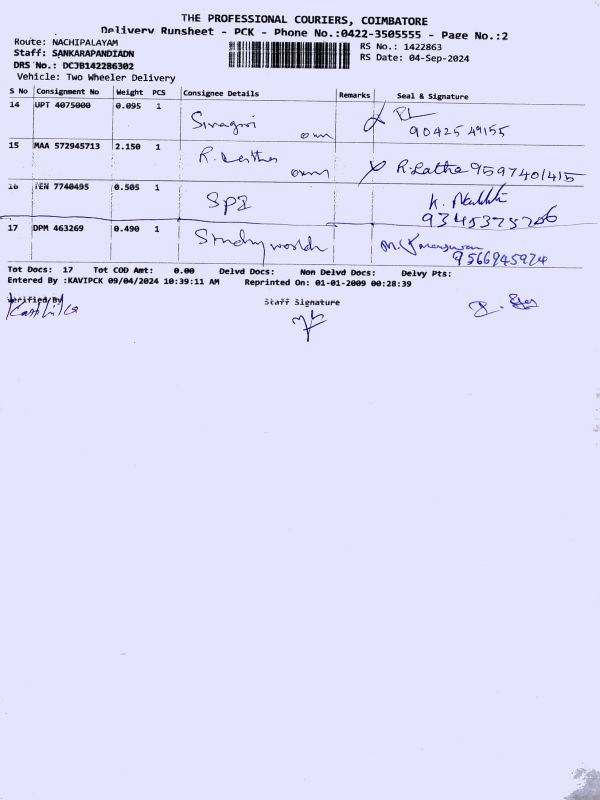 THE PROFESSIONAL COURIERS, COIMBATORE
Delivery Runsheet - PCK - Phone No.:0422-3505555 - Page No.:2
Route: NACHIPALAYAM
RS No.: 1422863
Staff: SANKARAPANDIADN
RS Date: 04-Sep-2024
DRS No.: DCJB142286302
Vehicle: Two Wheeler Delivery
S No Consignment No Weight PCS Consignee Details Remarks Seal & Signature
14 UPT 4075000 0.095 1
own 90425 49155
15 MAA 572945713 2.150 1 R.
own R. Latha 9597401415
16 TEN 7740495 0.505 1 SPI K.
17 DPM 463269 0.490 1 Study world M.
9566945924
Tot Docs: 17 Tot COD Amt: 0.00 Delvd Docs: Non Delvd Docs: Delvy Pts:
Entered By :KAVIPCK 09/04/2024 10:39:11 AM Reprinted On: 01-01-2009 00:28:39
Verified By Staff Signature